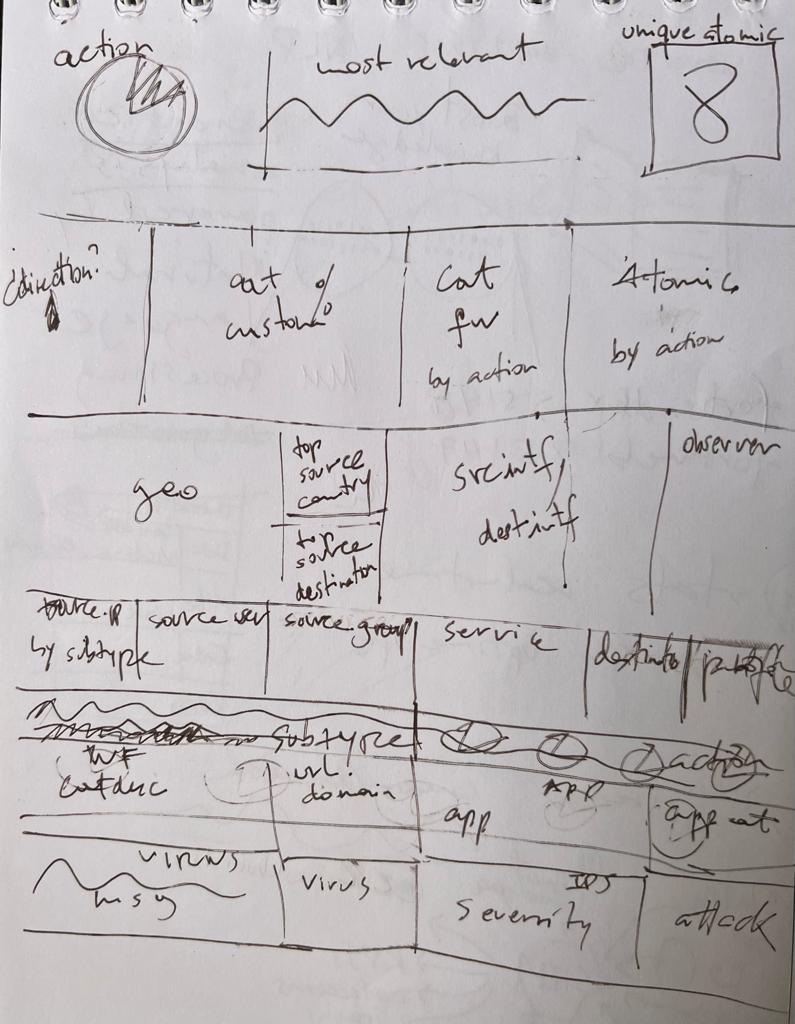 action
most relevant
unique atomic
8
direction?
cat %
custom
cat
fw
by action
Atomic
by action
geo
top
source
country
top
source
destination
srcintf/
destintf
observer
source.ip
by subtype
source user
source.group
service
subtype
action
WF
catdesc
url.
domain
app
APP
app cat
virus
msg
virus
IPS
severity
attack